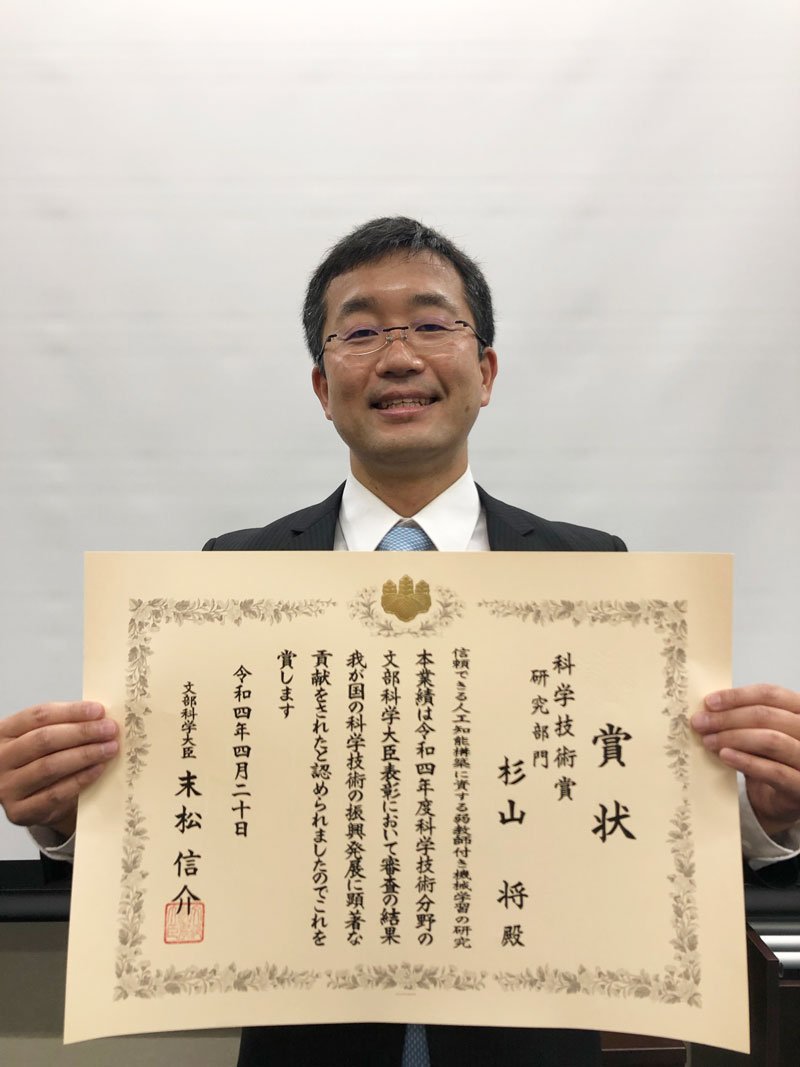 賞状
科学技術賞
研究部門
杉山 将 殿
信頼できる人工知能構築に資する弱教師付き機械学習の研究
本業績は令和四年度科学技術分野の
文部科学大臣表彰において審査の結果
我が国の科学技術の振興発展に顕著な
貢献をされたと認められましたのでこれを
賞します
令和四年四月二十日
文部科学大臣 末松 信介